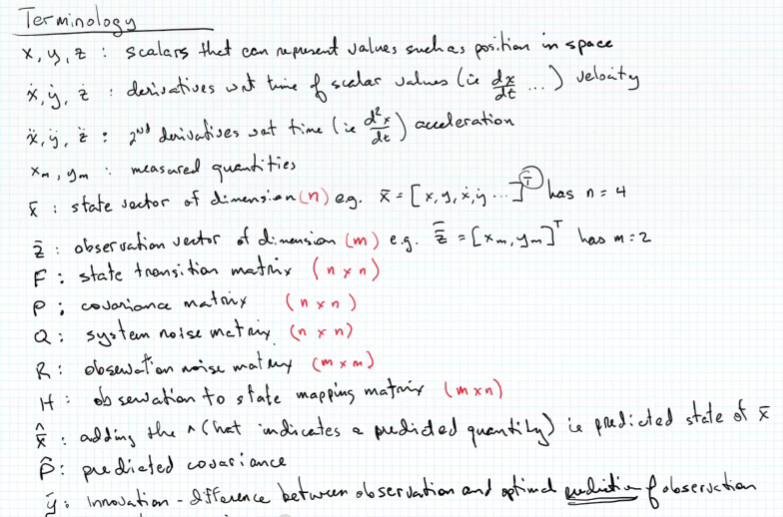 Terminology
x, y, z : scalars that can represent values such as position in space
ẋ, ẏ, ż : derivatives wrt time of scalar values (ie dx/dt ...) velocity
ẍ, ÿ, z̈ : 2nd derivatives wrt time (ie d²x/dt) acceleration
xm, ym : measured quantities
x̄ : state vector of dimension (n) e.g. x̄ = [x, y, ẋ, ẏ ...]ᵀ has n = 4
z̄ : observation vector of dimension (m) e.g. z̄ = [xm, ym]ᵀ has m = 2
F : state transition matrix (n x n)
P : covariance matrix (n x n)
Q : system noise matrix (n x n)
R : observation noise matrix (m x m)
H : observation to state mapping matrix (m x n)
x̄̂ : adding the ^ (hat indicates a predicted quantity) ie predicted state of x̄
P̂ : predicted covariance
ȳ : innovation - difference between observation and optimal prediction of observation